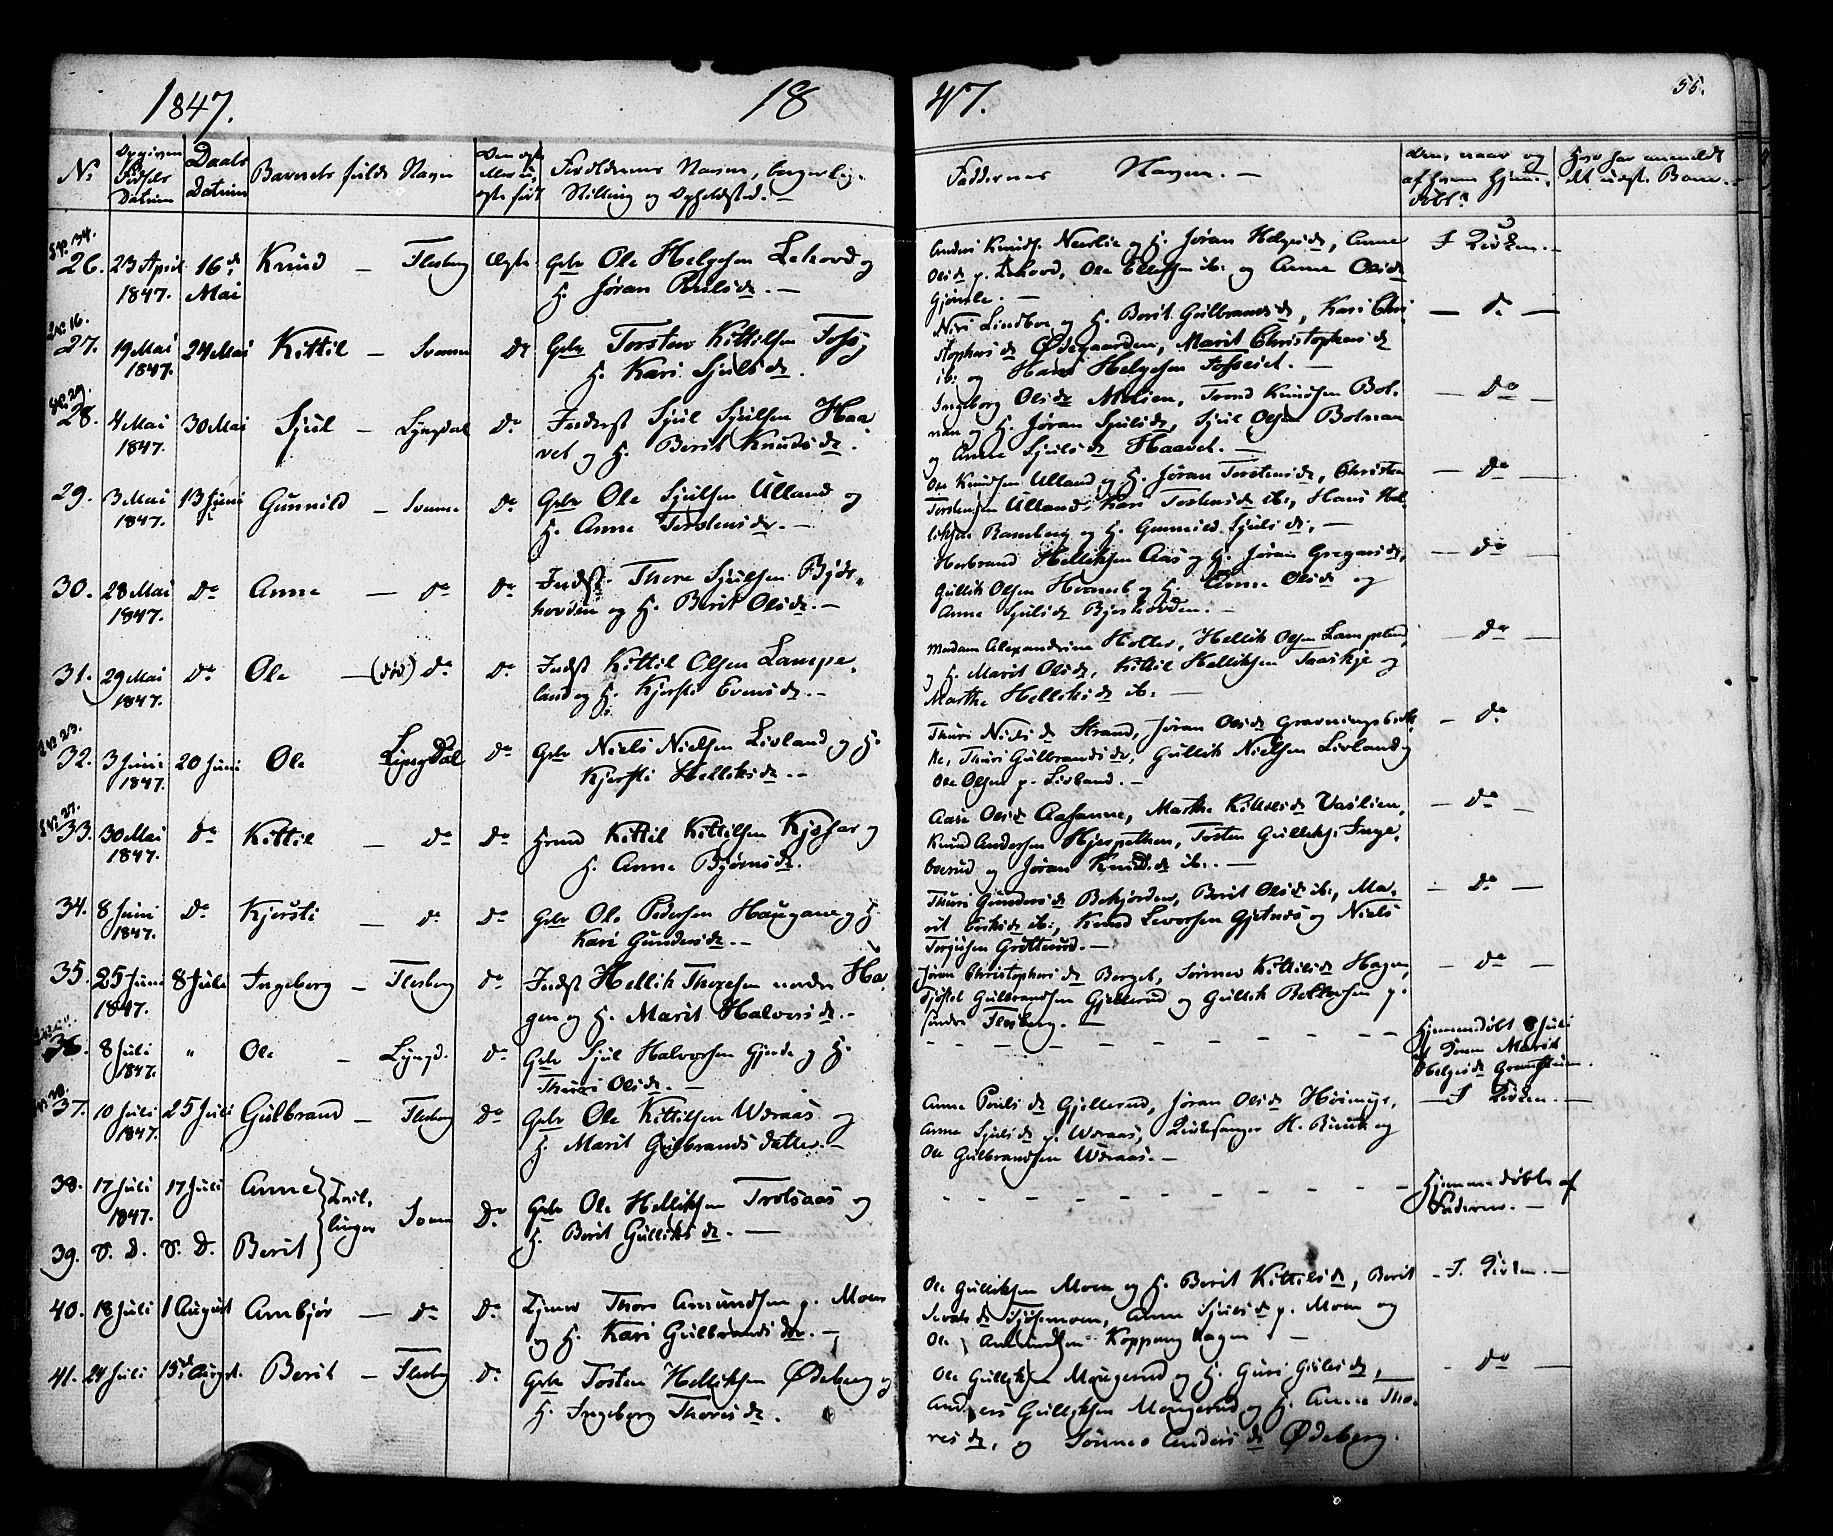 1847.
18 47.
55.
No
Opgiven Fødsels Datum
Daabs Datum
Barnets fulde Navn
Forældrenes Navn, borgerlige Stilling og Opholdssted. —
Faddernes Navn. —
26. 23 April 1847. 16de Mai Knud — Flesberg Ægte Gbr Ole Helgesen Lekovd og
H. Jøran Pouls dr. —
Anders Knuds. Naverlie og H. Jøran Helges dr, Anne
Ols dr p. Lekovd, Ole Ellefsen ib. og Anne Ols dr
I Kirken. —
27. 19 Mai 1847. 24 Mai Kittil — Svenne Do Gbr Torsten Kittilsen Foss og
H. Kari Sjuls dr.
Niri Lindboe og H. Berit Gulbrands dr, Kari Chri-
stophers dr Ødegaarden, Marit Christophers dr
ib. og Hans Helgesen Fosseiet. —
— Do —
28. 4 Mai 1847. 30 Mai Sjul — Lyngdal Do Inderst Sjul Sjulsen Haa-
vet og H. Berit Knuds dr.
Ingeborg Ols dr Molien, Tord Knudsen Bot-
nan og H. Jøran Sjuls dr, Sjul Olsen Botnan
og Anne Sjuls dr Haavet. —
— Do —
29. 3 Mai 1847. 13 Juni Gunnild — Svenne Do Gbr Ole Sjulsen Ulland og
H. Anne Torstens dr. —
Ole Knudsen Ulland og H. Jøran Torstens dr, Christen
Torstensen Ulland, Kari Torstens dr ib., Hans Hel-
liksen Ramberg og H. Gunnild Sjuls dr. —
— Do —
30. 28 Mai 1847. Do Anne — Do Do Indst. Thore Sjulsen Bjør-
hovden og H. Berit Ols dr. —
Herbrand Helliksen Aas og H. Jøran Gregars dr,
Gullik Olsen og H. Anne Ols dr og
Anne Sjuls dr Bjørhovden. —
— Do —
31. 29 Mai 1847. Do Ole — (død) Do Do Indst Kittil Olsen Lampe-
land og H. Kjersti Evens dr. —
Madam Alexandrine Holter, Hellik Olsen Lampeland
og H. Marit Ols dr, Kittil Helliksen Taaskje og
Marthe Helliks dr ib. —
— Do —
32. 3 Juni 1847. 20 Juni Ole Lyngdal Do Gbr Niels Nielsen Livland og H.
Kjersti Helliks dr. —
Thuri Niels dr Strand, Jøran Ols dr Gravningsbak-
ke, Thuri Gulbrands dr, Gullik Nielsen Livland og
Ole Olsen p. Livland. —
— Do
33. 30 Mai 1847. Do Kittil — Do Do Kittil Kittilsen og
H. Anne Bjørns dr.
Aase Ols dr Aasanne, Marthe Kittils dr Vaslien,
Knud Andersen Hjerpethen, Torsten Gulliks. Inge-
borrud og Jøran Knuds dr ib. —
— Do —
34. 8 Juni 1847. Do Kjersti — Do Do Gbr Ole Pedersen Haugane og H.
Kari Gunders dr. —
Thuri Gunders dr Bekjorden, Berit Ols dr ib., Ma-
rit dr ib., Knud Levorsen og Niels
— Do —
35. 25 Juni 1847. 8 Juli Ingeborg — Flesberg Do Indst Hellik Thoresen nordre Ha-
gen og H. Marit Halvors dr. —
Jøran Christophers dr Berget, Sønnev Kittils dr Hagen,
Gulbrandsen Gjellerud og Gullik p.
søndre Flesberg. —
— Do —
36. 8 Juli 1847. " Ole — Lyngd. Do Gbr Sjul Halvorsen Gjerde og H.
Thuri Ols dr. —
Hjemmedøbt 8 Juli
af Marit
Helges dr
37. 10 Juli 1847. 25 Juli Gulbrand — Flesberg Do Gbr Ole Kittilsen Wæraas og
H. Marit Gulbrands datter. —
Anne Pouls dr Gjellerud, Jøran Ols dr
Anne Sjuls dr p. Wæraas, Kirkesanger H. Ruud og
Ole Gulbrandsen Wæraas. —
— I Kirken. —
38. 17 Juli 1847. 17 Juli Anne
Tvil-
linger
Svene Do Gbr Ole Helliksen Trolsaas og
H. Berit Gulliks dr. —
Hjemmedøbte af
Faderen. —
39. S. D. S. D. Berit
40. 18 Juli 1 August Anbjør — Do Do Thore Amundsen p. Moen
og H. Kari Gulbrands dtr. —
Ole Gulliksen Moen og H. Berit Kittils dr, Berit
dr Anne Sjuls dr p. Moen og
Ole Amundsen Koppang hagen —
— I. Kirken. —
41. 24 Juli 15de August. Berit — Flesberg Do Gbr Torsten Helliksen Ødeberg og
H. Ingeborg Thores dr.
Ole Gulliksen Mougerud og H. Guri Guls dr,
Anders Gulliksen Mougerud og H. Anne Tho-
res dr, og Sønnev Anders dr Ødeberg.
— Do —